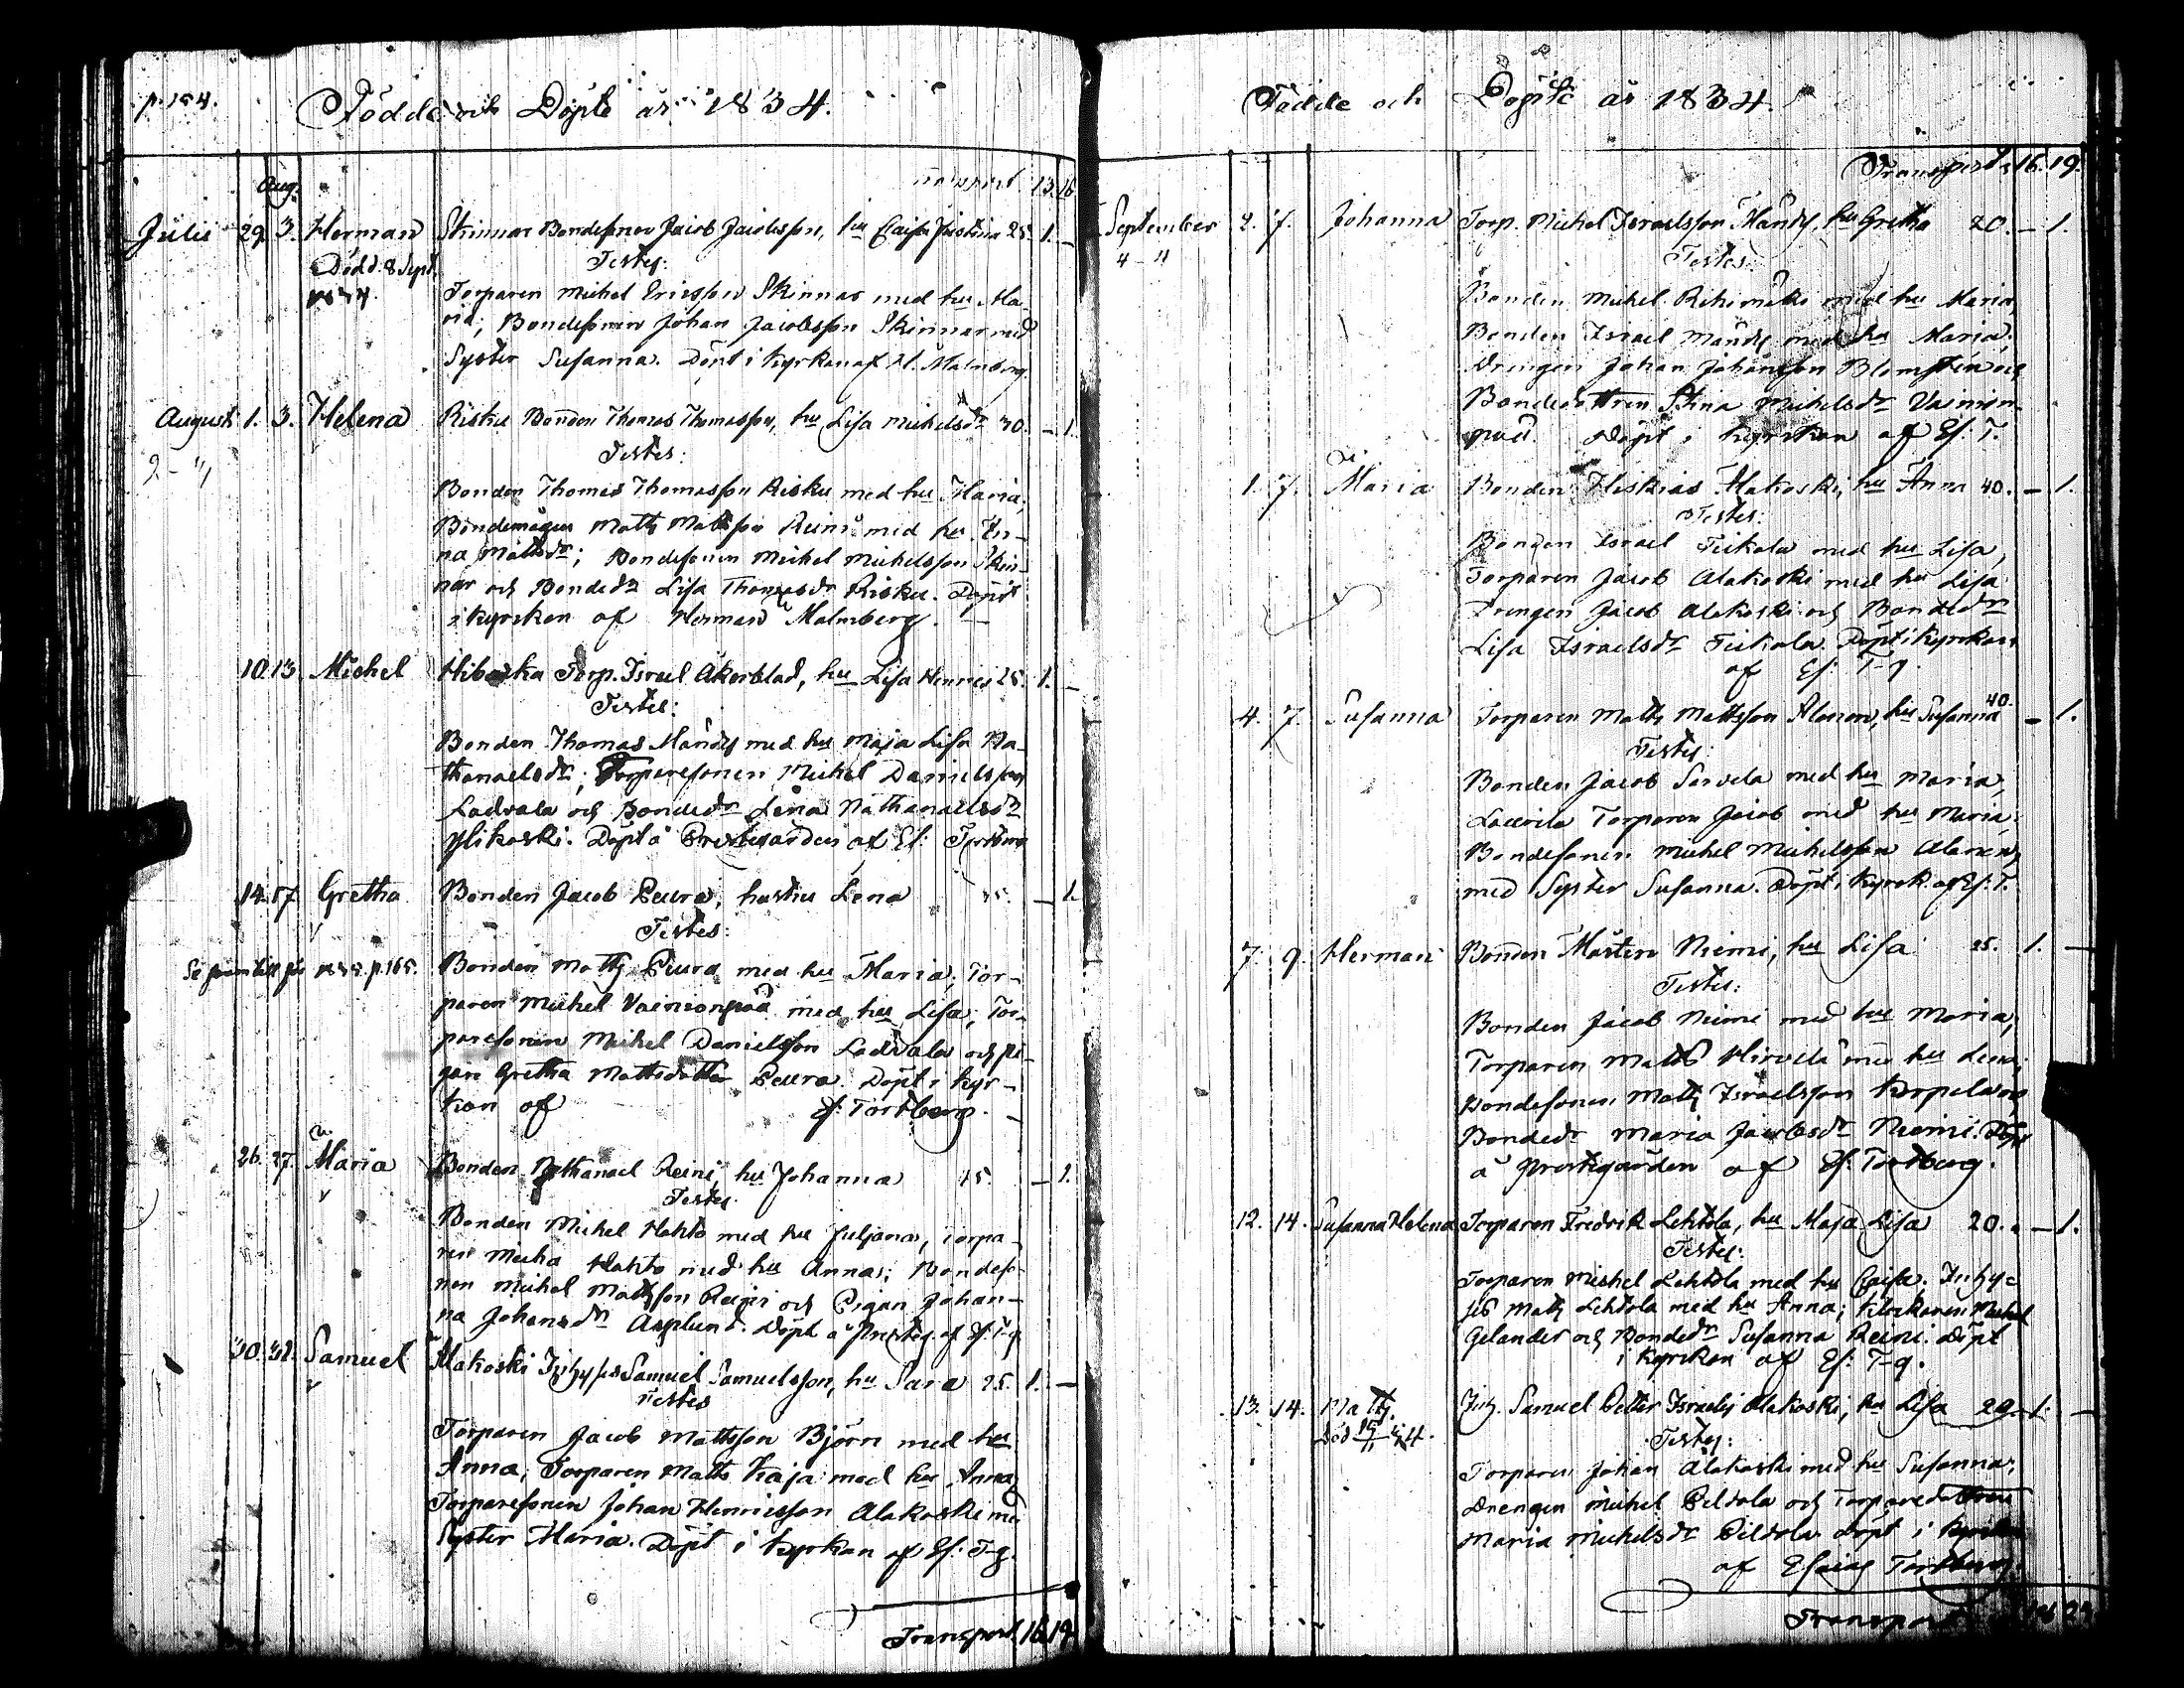 p. 154.
Födde och Döpte år 1834.
Aug.
Transport 13. 16
Julii 29. 3. Herman Skinnar Bondesonen Jacob Jacobsson, hu Caisa Christina 25. 1. –
Död d. 8 Sept. Testes:
1834. Torparen Michel Ericsson Skinnar med hu Ma-
ria; Bondesonen Johan Jacobsson Skinnar med
Syster Susanna. Döpt i kyrkan af H. Malmberg.
Augusti 1. 3. Helena Risku Bonden Thomas Thomasson, hu Lisa Michelsdr 30. – 1.
Testes:
Bonden Thomas Thomasson Risku med hu Maria,
Bondemågen Matts Mattsson Reini med hu An-
na Mattsdr; Bondesonen Michel Michelsson Skin-
nar och Bondedr Lisa Thomasdr Risku. Döpt
i kyrkan af Herman Malmberg. –
10. 13. Michel Torp. Israel Åkerblad, hu Lisa 25. 1. –
Testes:
Bonden Thomas Mändy med hu Maja Lisa Na-
thanaelsdr; Torparesonen Michel Danielsson
Ladvala och Bondedr Lena Nathanaelsdr
Ylikoski. Döpt å Prestegården af Es: Tortberg
14. 17. Gretha Bonden Jacob Peura, hustru Lena – 1.
Testes:
Se fram till p. 165. Bonden Matts Peura med hu Maria, Tor-
paren Michel Vainionpää med hu Lisa, Tor-
paresonen Michel Danielsson Ladvala och pi-
gan Gretha Mattsdotter Peura. Döpt i kyr-
kan af Es: Tortberg. –
26. 27. Maria Bonden Nathanael Reini, hu Johanna 45. – 1.
Testes.
Bonden Michel Hahto med hu Juljana, Torpa-
ren Hahto med hu Anna; Bondeso-
nen Michel Mattsson Reini och Pigan Johan-
na Johansdr Asplund. Döpt å Presteg. af Es: T-g
30. 31. Samuel Alakoski Inhyses Samuel Samuelsson, hu Sara 25. 1. –
Testes
Torparen Jacob Mattsson Björn med hu
Anna, Torparen Matts Kaja med hu Anna,
Torparesonen Johan Henricsson Alakoski med
Syster Maria. Döpt i kyrkan af Es: T-g.
Transport. 16. 19.
Födde och Döpte år 1834.
Transport 16. 19.
September 2. 7. Johanna Torp. Michel Israelsson Mändy, hu Gretha 20. – 1.
Testes:
Bonden Michel med hu Maria,
Bonden Israel Mändy med hu Maria.
Drengen Johan Johansson Blomsten och
Bondedottren Stina Michelsdr Vainion-
pää. Döpt i kyrkan af Es: T.
1. 7. Maria Bonden Hiskias Alakoski, hu Anna 40. – 1.
Testes:
Bonden Israel Fiskala med hu Lisa,
Torparen Jacob Alakoski med hu Lisa
Drengen Jacob Alakoski och Bondedr
Lisa Israelsdr Fiskala. Döpt i kyrkan
af Es: T-g
4. 7. Susanna Torparen Matts Mattsson Alanen, hu Susanna 40. – 1.
Testes:
Bonden Jacob Servela med hu Maria,
Torparen Jacob med hu Maria,
Bondesonen Michel Michelsson Alanen
med Syster Susanna. Döpt i kyrk. af Es: T.
7. 9. Herman Bonden Mårten Niemi, hu Lisa 25. 1. –
Testes:
Bonden Jacob Niemi med hu Maria,
Torparen Matts Hirvelä med hu Lena,
Bondesonen Matts Israelsson Korpela och
Bondedr Maria Jacobsdr Niemi. Döpt
å prestgården af Es: Tortberg.
12. 14. Susanna Helena Torparen Fredrik Lehtola, hu Maja Lisa 20. – 1.
Testes:
Torparen Michel Lehtola med hu Caisa. Inhy-
ses Matts Lehtola med hu Anna; Klockaren Michel
Gelander och Bondedr Susanna Reini. Döpt
i kyrkan af Es: T-g.
13. 14. Matts. Inh. Samuel Petter Israelss Alakoski, hu Lisa 29. 1. –
Död Testes:
Torparen Johan Alakoski med hu Susanna,
Drengen Michel Peldola och Torparedottren
Maria Michelsdr Peldola. Döpt i kyrkan
af Esaias Tortberg.
Transport